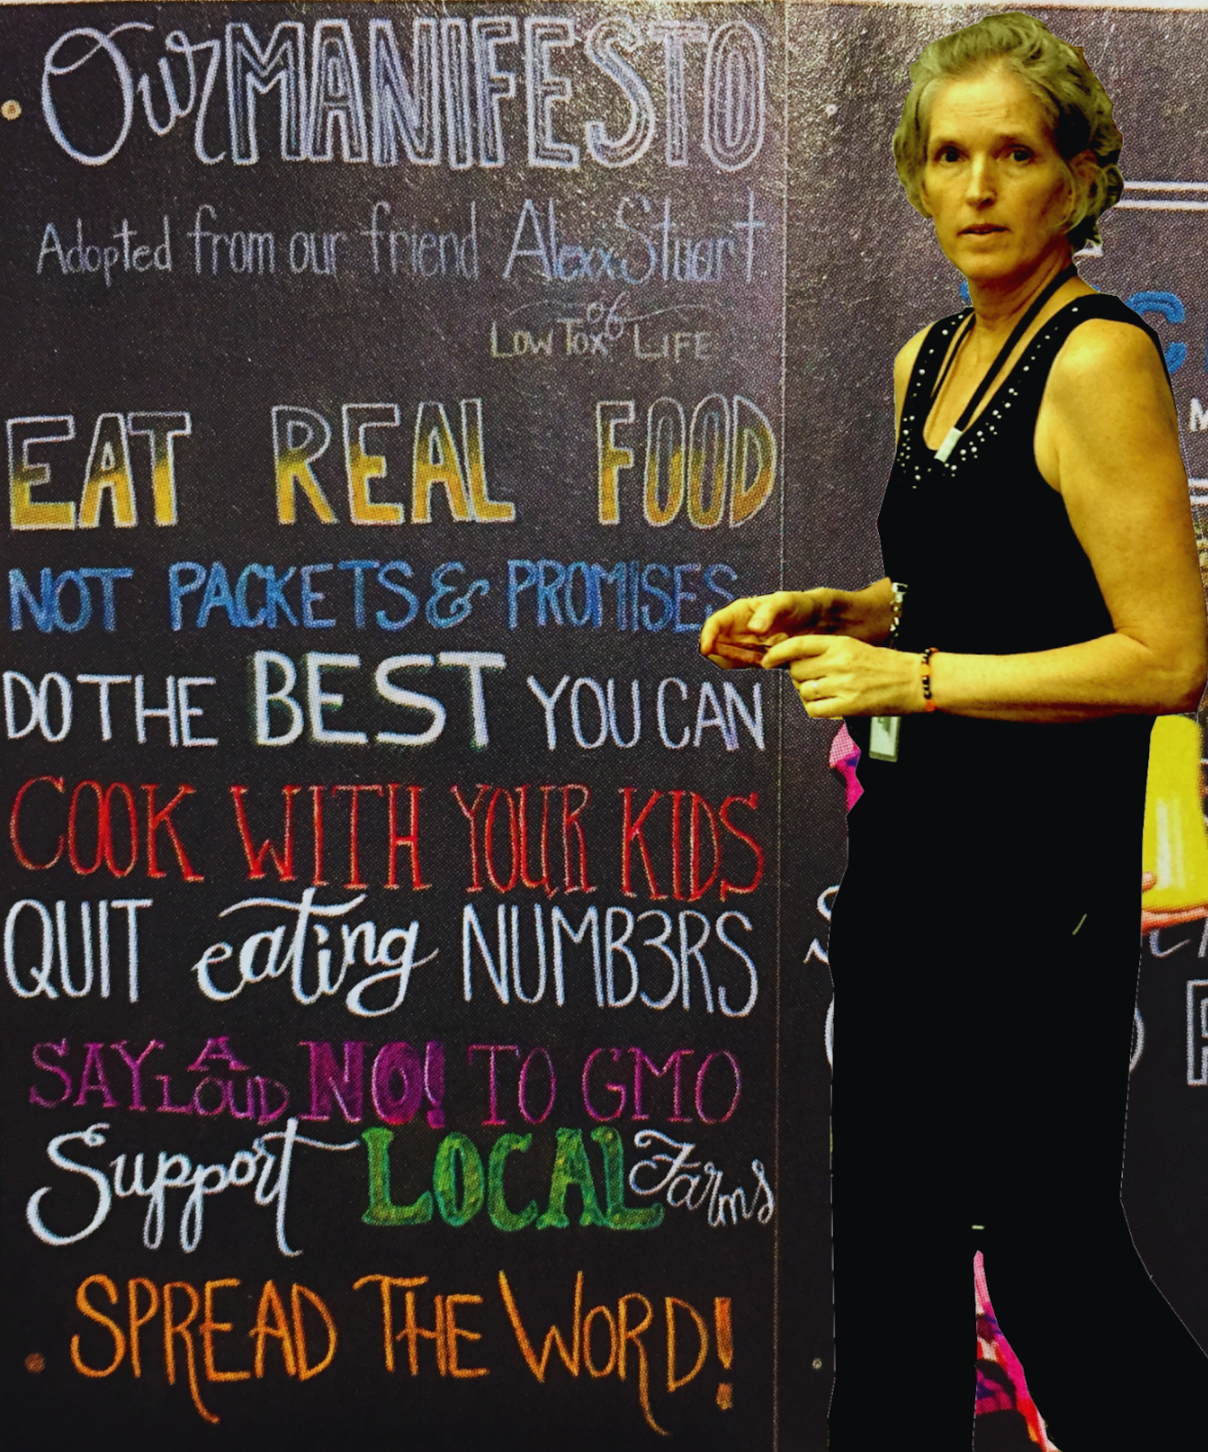 Our MANIFESTO
Adopted from our friend Alexx Stuart
of
LOW TOX LIFE
EAT REAL FOOD
NOT PACKETS & PROMISES
DO THE BEST YOU CAN
COOK WITH YOUR KIDS
QUIT eating NUMB3RS
SAY A LOUD NO! TO GMO
Support LOCAL Farms
SPREAD THE WORD!